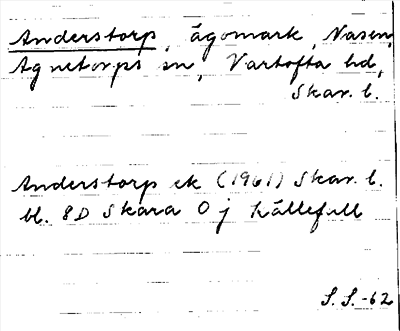 Anderstorp, ägomark, Nasen,
Agnetorps sn, Vartofta hd,
Skar. l.
Anderstorp ek (1961) Skar. l.
bl. 8D Skara 0 j Källefall
S.S.-62